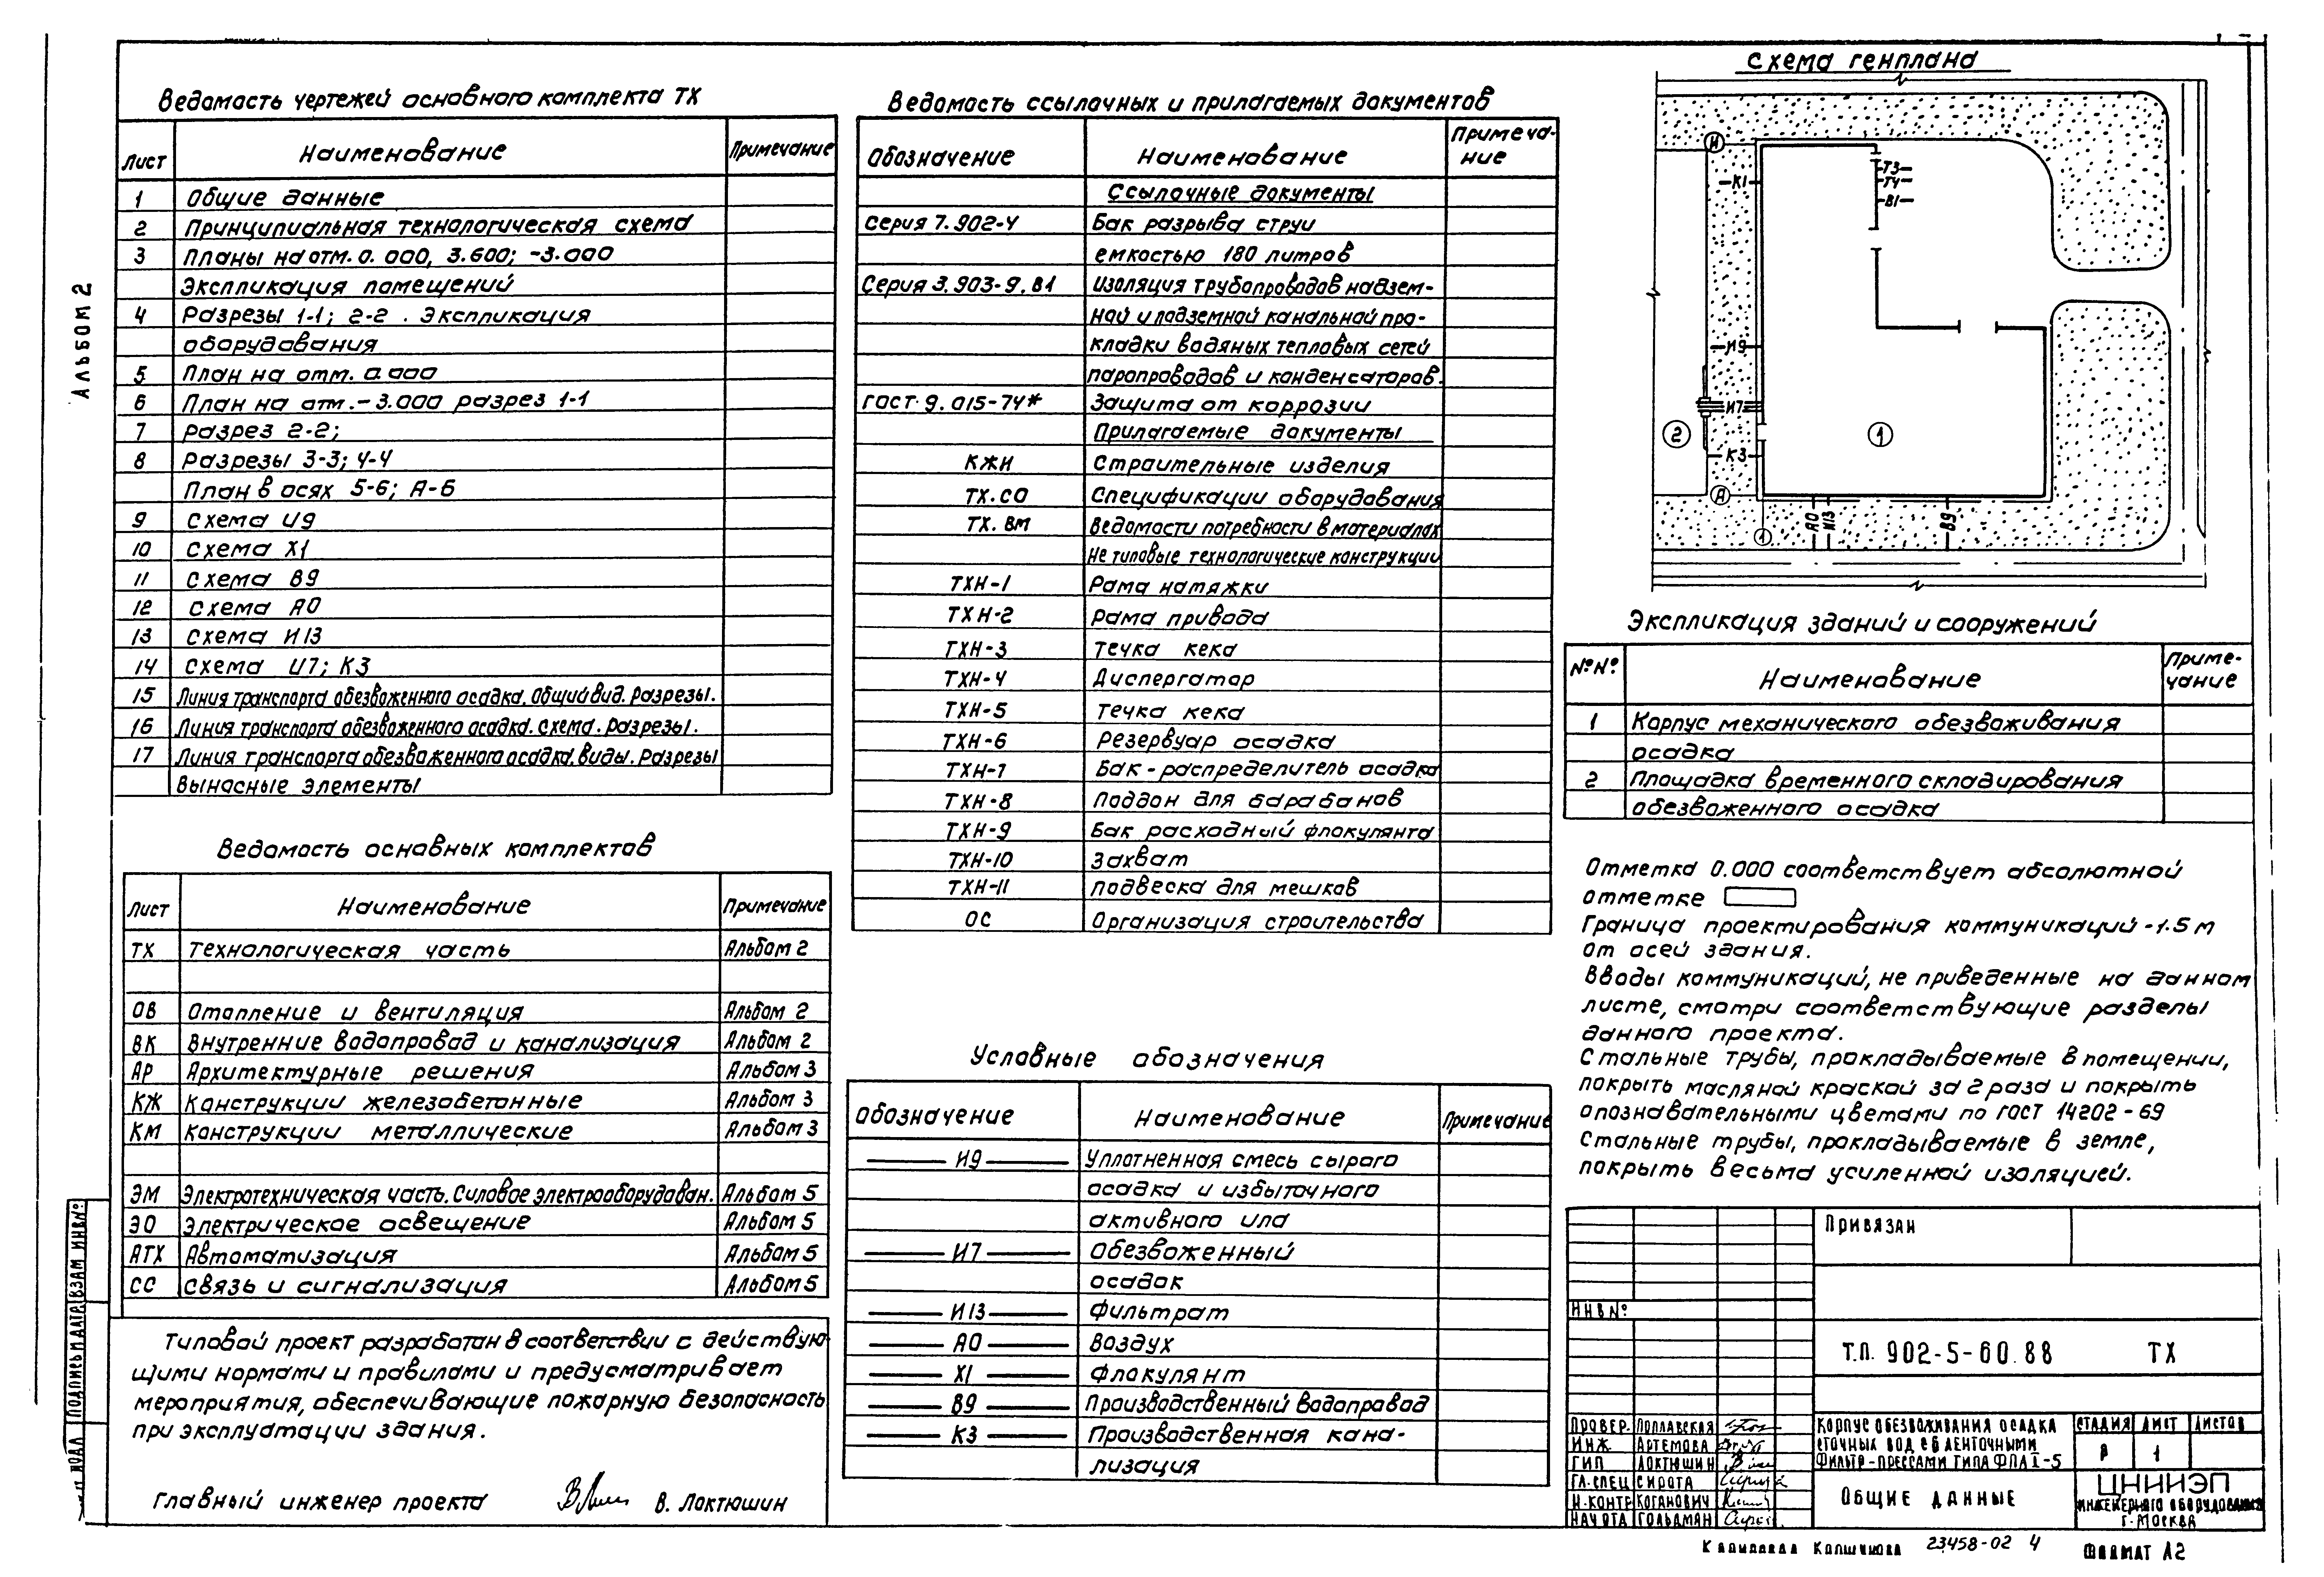 Альбом 2
Ведомость чертежей основного комплекта ТХ
Лист Наименование Примечание
1 Общие данные
2 Принципиальная технологическая схема
3 Планы на отм. 0.000, 3.600; -3.000
Экспликация помещений
4 Разрезы 1-1; 2-2. Экспликация
оборудования
5 План на отм. 0.000
6 План на отм. -3.000 разрез 1-1
7 Разрез 2-2;
8 Разрезы 3-3; 4-4
План в осях 5-6; А-Б
9 Схема И9
10 Схема Х1
11 Схема В9
12 Схема А0
13 Схема И13
14 Схема И7; К3
15 Линия транспорта обезвоженного осадка. Общий вид. Разрезы.
16 Линия транспорта обезвоженного осадка. Схема. Разрезы.
17 Линия транспорта обезвоженного осадка. Виды. Разрезы
Выносные элементы
Ведомость основных комплектов
Лист Наименование Примечание
ТХ Технологическая часть Альбом 2
ОВ Отопление и вентиляция Альбом 2
ВК Внутренние водопровод и канализация Альбом 2
АР Архитектурные решения Альбом 3
КЖ Конструкции железобетонные Альбом 3
КМ Конструкции металлические Альбом 3
ЭМ Электротехническая часть. Силовое электрооборудован. Альбом 5
ЭО Электрическое освещение Альбом 5
АТХ Автоматизация Альбом 5
СС Связь и сигнализация Альбом 5
Типовой проект разработан в соответствии с действую-
щими нормами и правилами и предусматривает
мероприятия, обеспечивающие пожарную безопасность
при эксплуатации здания.
Главный инженер проекта В. Локтюшин
Ведомость ссылочных и прилагаемых документов
Обозначение Наименование Примеча-
ние
Ссылочные документы
Серия 7.902-4 Бак разрыва струи
емкостью 180 литров
Серия 3.903-9. В1 Изоляция трубопроводов надзем-
ной и подземной канальной про-
кладки водяных тепловых сетей
паропроводов и конденсаторов.
ГОСТ 9.015-74* Защита от коррозии
Прилагаемые документы
КЖИ Строительные изделия
ТХ.СО Спецификации оборудования
ТХ. ВМ Ведомости потребности в материалах
Не типовые технологические конструкции
ТХН-1 Рама натяжки
ТХН-2 Рама привода
ТХН-3 Течка кека
ТХН-4 Диспергатор
ТХН-5 Течка кека
ТХН-6 Резервуар осадка
ТХН-7 Бак-распределитель осадка
ТХН-8 Поддон для барабанов
ТХН-9 Бак расходный флокулянта
ТХН-10 Захват
ТХН-11 Подвеска для мешков
ОС Организация строительства
Условные обозначения
Обозначение Наименование Примечание
И9 Уплотненная смесь сырого
осадка и избыточного
активного ила
И7 Обезвоженный
осадок
И13 Фильтрат
А0 Воздух
Х1 Флокулянт
В9 Производственный водопровод
К3 Производственная кана-
лизация
Схема генплана
И
К1
Т3
Т4
В1
И9
И7
К3
2
1
А
1
А0
И13
В9
Экспликация зданий и сооружений
№№ Наименование Приме-
чание
1 Корпус механического обезвоживания
осадка
2 Площадка временного складирования
обезвоженного осадка
Отметка 0.000 соответствует абсолютной
отметке
Граница проектирования коммуникаций -1.5 м
от осей здания.
Вводы коммуникаций, не приведенные на данном
листе, смотри соответствующие разделы
данного проекта.
Стальные трубы, прокладываемые в помещении,
покрыть масляной краской за 2 раза и покрыть
опознавательными цветами по ГОСТ 14202-69
Стальные трубы, прокладываемые в земле,
покрыть весьма усиленной изоляцией.
Привязан
ИНВ№
Т.П. 902-5-60.88 ТХ
Провер. Поплавская
Инж Артемова
ГИП Локтюшин
Гл.спец Сирота
Н.контр Коганович
Нач ота Гольдман
Корпус обезвоживания осадка
сточных вод с 6 ленточными
фильтр-прессами типа ФПАI-5
Стадия Лист Листов
Р 1
Общие данные
ЦНИИЭП
инженерного оборудования
г. Москва
Подпись и дата
Взам инв№
23458-02 4
Формат А2